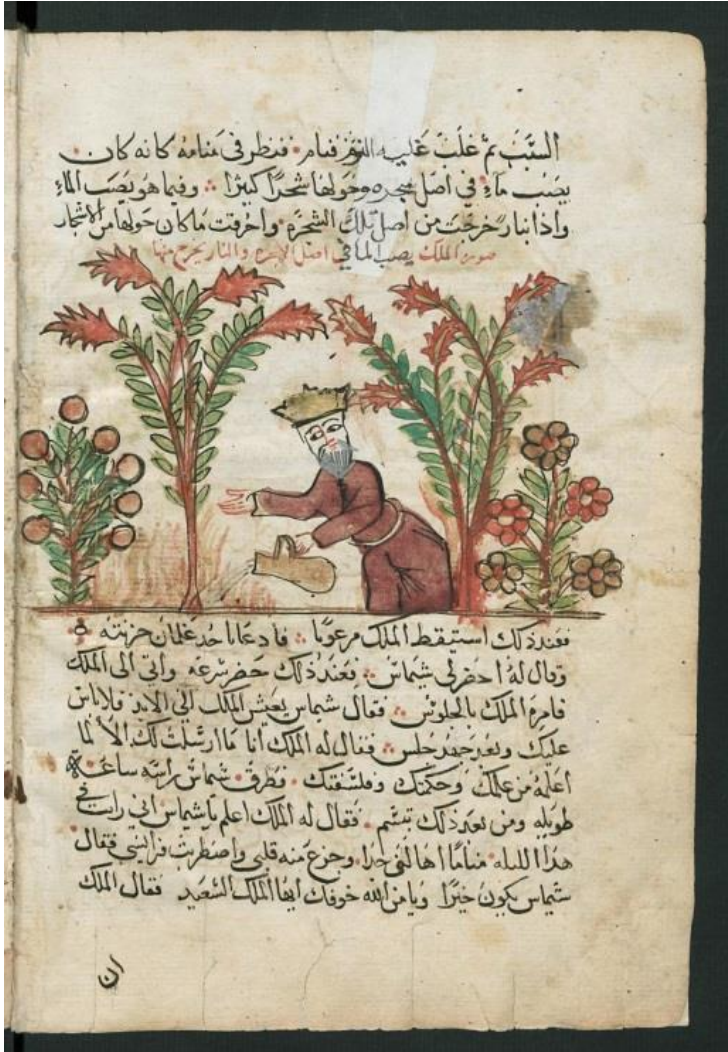 السبب ثم غلب عليه النوم فنام فنظر في منامه كانه كان
يصب ماء في اصل شجره وحولها شجرا كثيرا وفيما هو يصب الماء
واذا بنار خرجت من اصل تلك الشجره واحرقت ما كان حولها من الاشجار
صورة الملك يصب الما في اصل الشجره والنار يخرج منها
فعند ذلك استيقظ الملك مرعوبا فادعا باحد غلمان خزنته
وقال له احضر لي شيماس فعند ذلك حضر سرعه واتى الى الملك
فامره الملك بالجلوس فقال شيماس يعيش الملك الى الابد فلا باس
عليك وبعد جهد جلس فقال له الملك انا ما ارسلت لك الا لما
اعلمه من علمك وحكمتك وفلسفتك فطرق شماس راسه ساعة
طويله ومن بعد ذلك تبسم فقال له الملك اعلم يا شيماس اني رايت في
هذا الليله مناما اهالني جدا وجزع منه قلبي واضطربت فرايسي فقال
شيماس يكون خيرا ويامن الله خوفك ايها الملك السعيد فقال الملك
ان